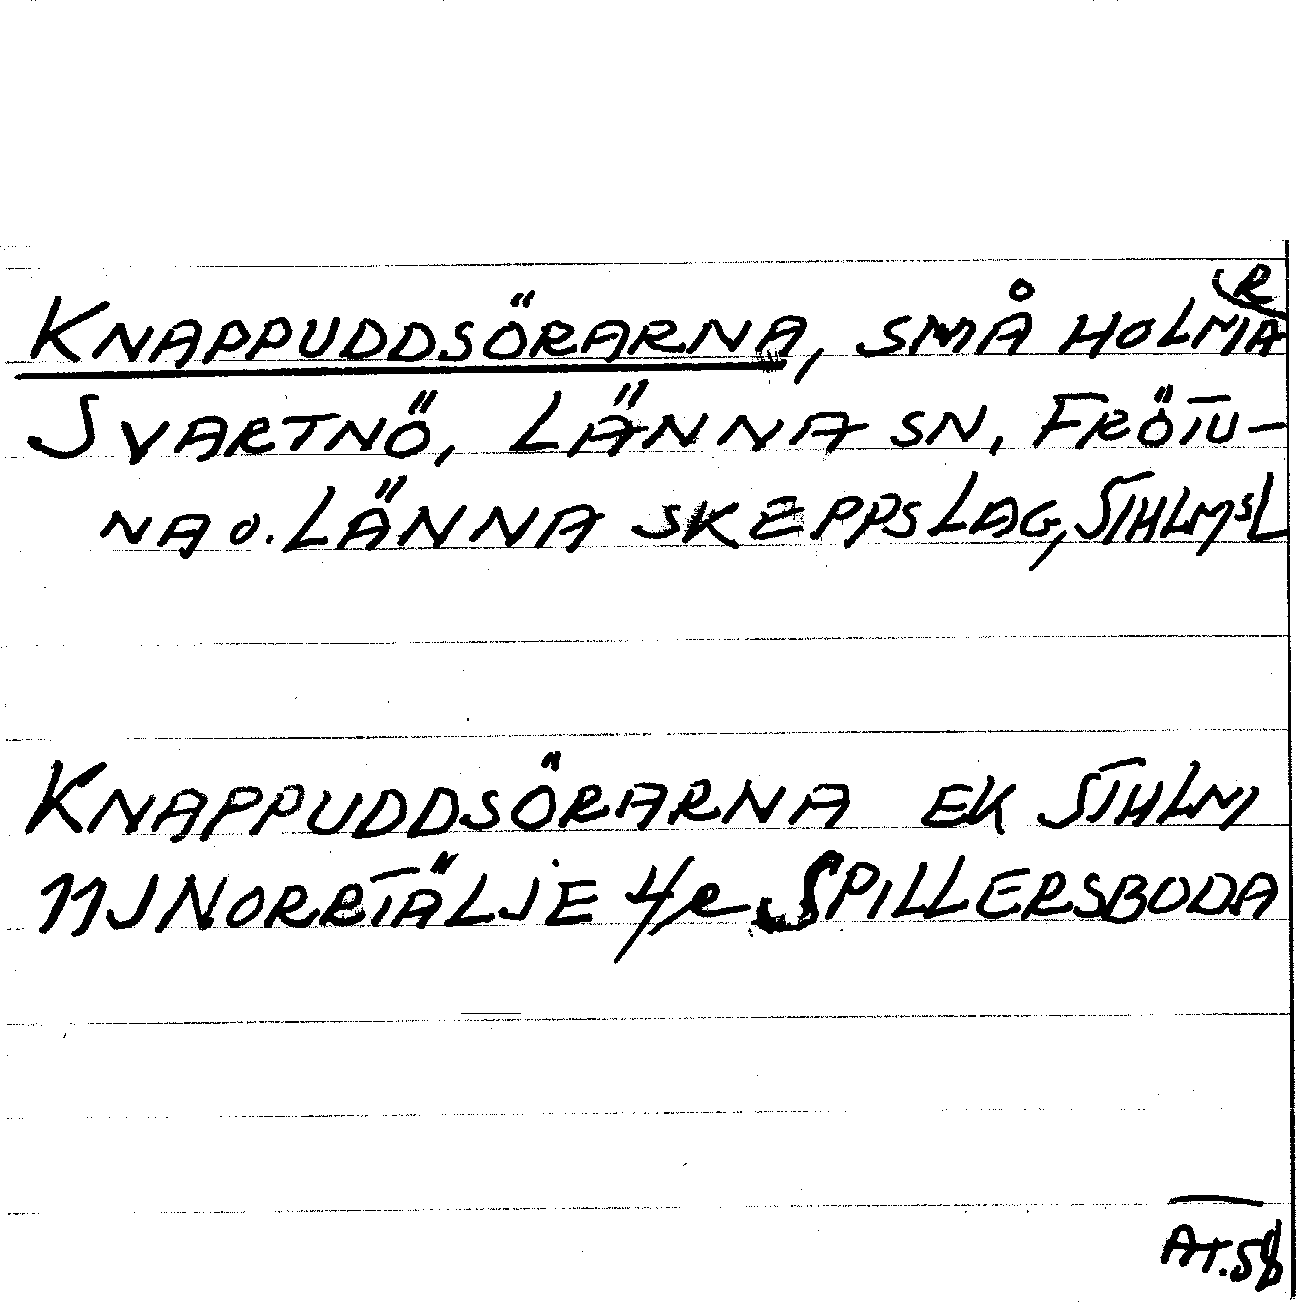 KNAPPUDDSÖRARNA, SMÅ HOLMAR
SVARTNÖ, LÄNNA SN, FRÖTU-
NA O. LÄNNA SKEPPSLAG, STHLMS L
KNAPPUDDSÖRARNA EK STHLM
11J NORRTÄLJE 4e SPILLERSBODA
AT. 58